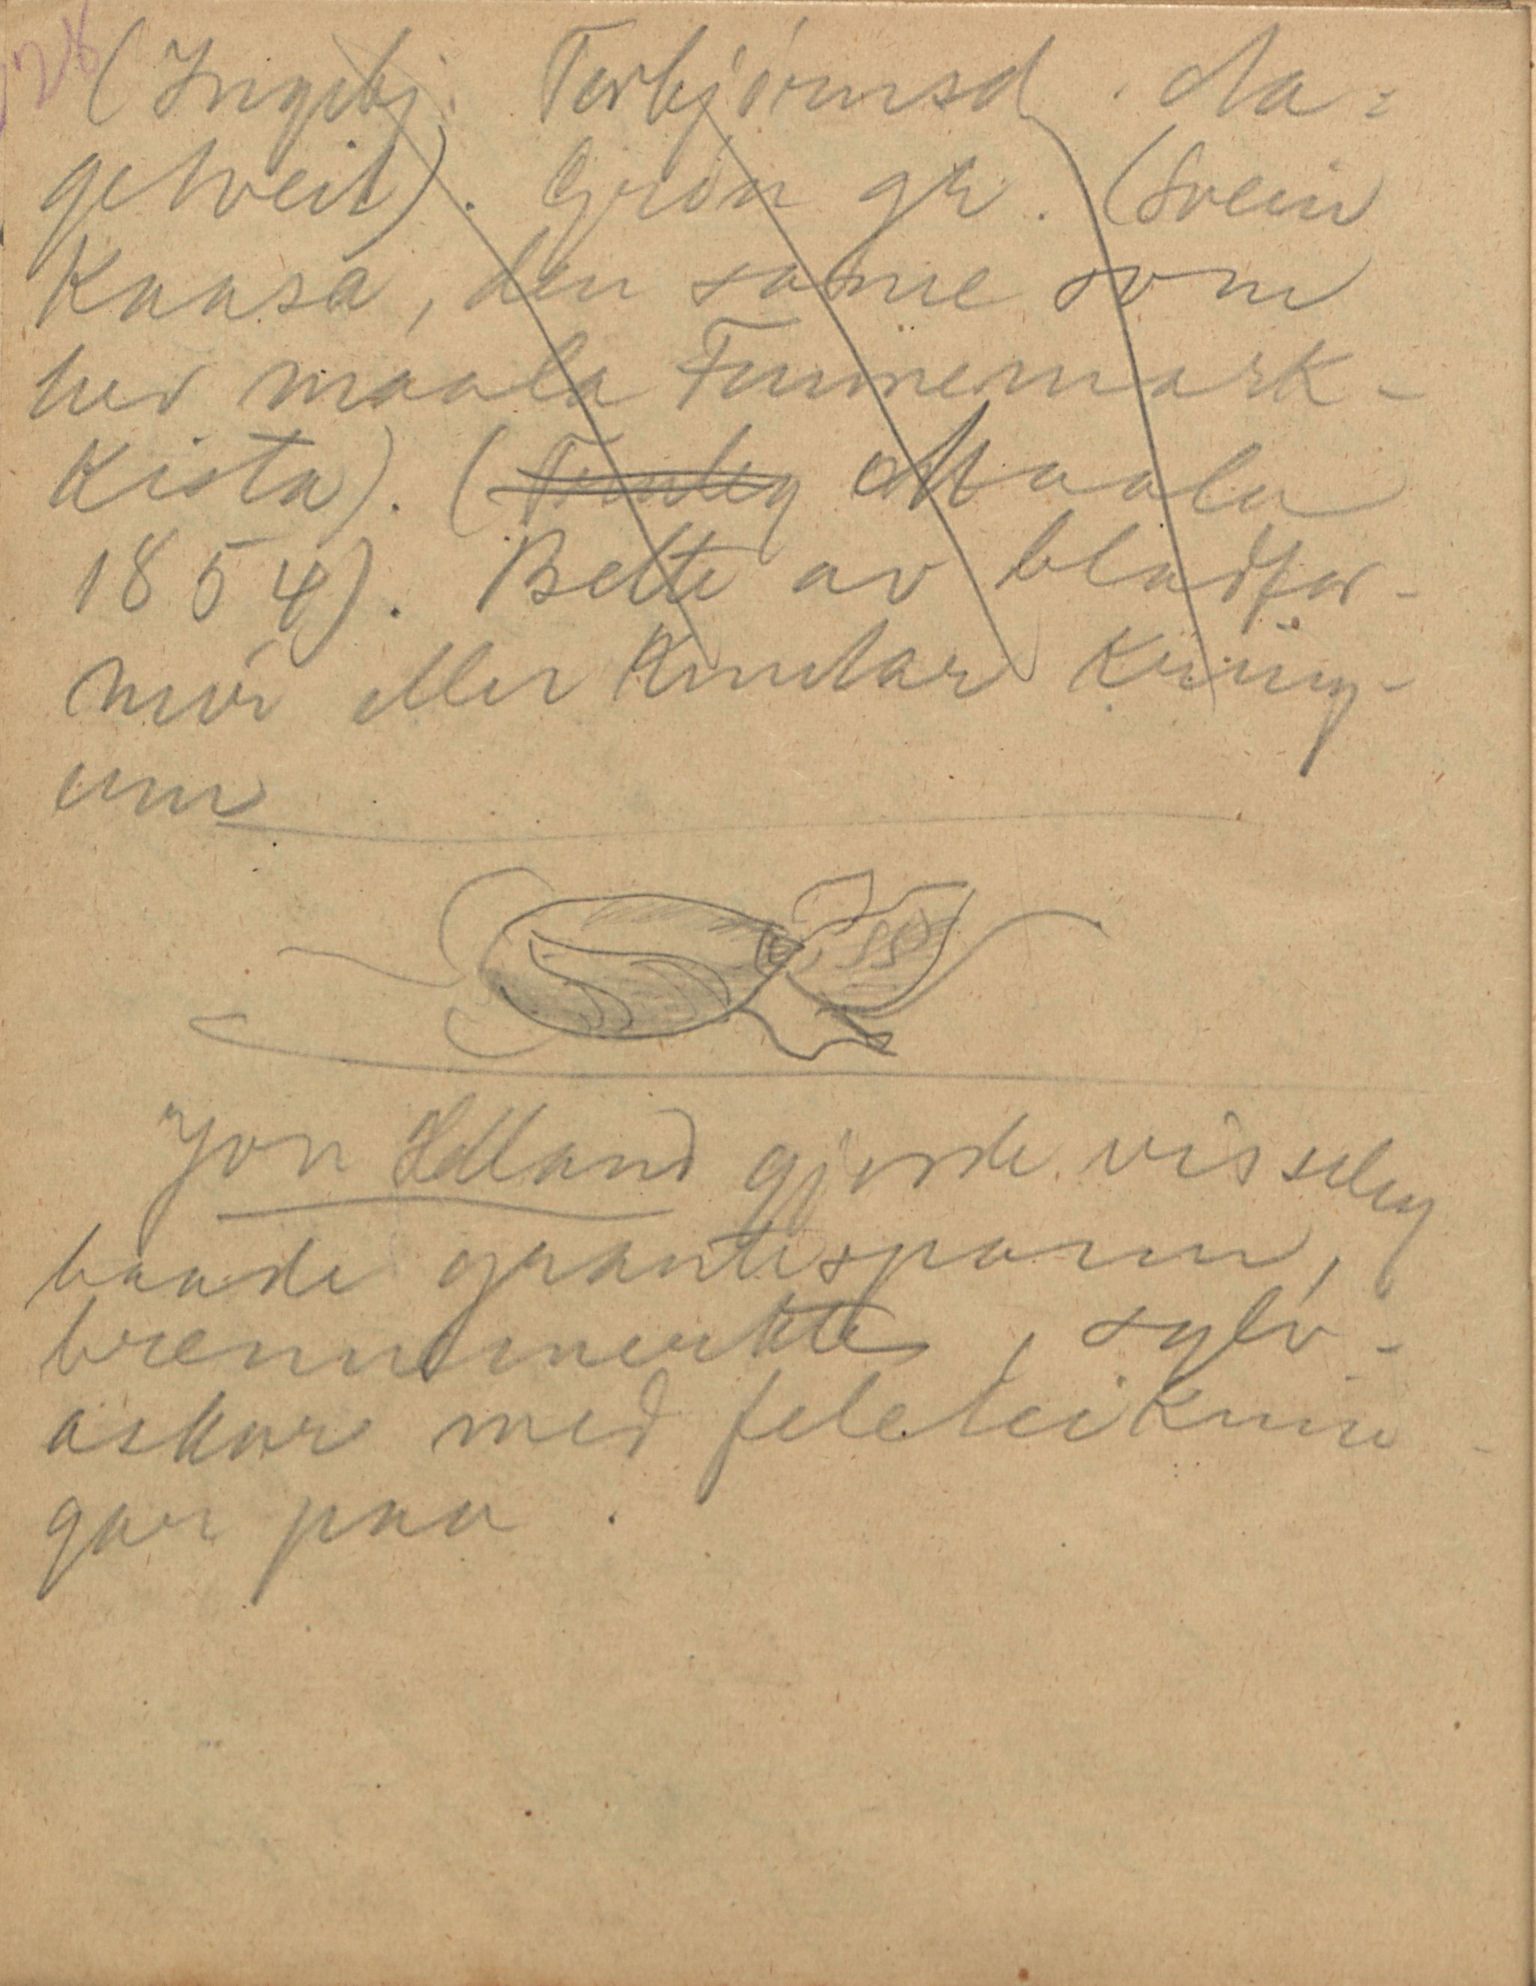 28
(Ingebj. Torbjörnsd. Aa=
getveit). Grön gr. (Svein
Kaasa, den same som
hev maala Finnemark-
kista). ( Maala
1854). Belte av bladfor-
mör eller knutar kring-
um
Jon Helland gjorde visseleg
baade grautespann,
brennmerkte, sylv-
askar med feleteiknin-
gar paa.